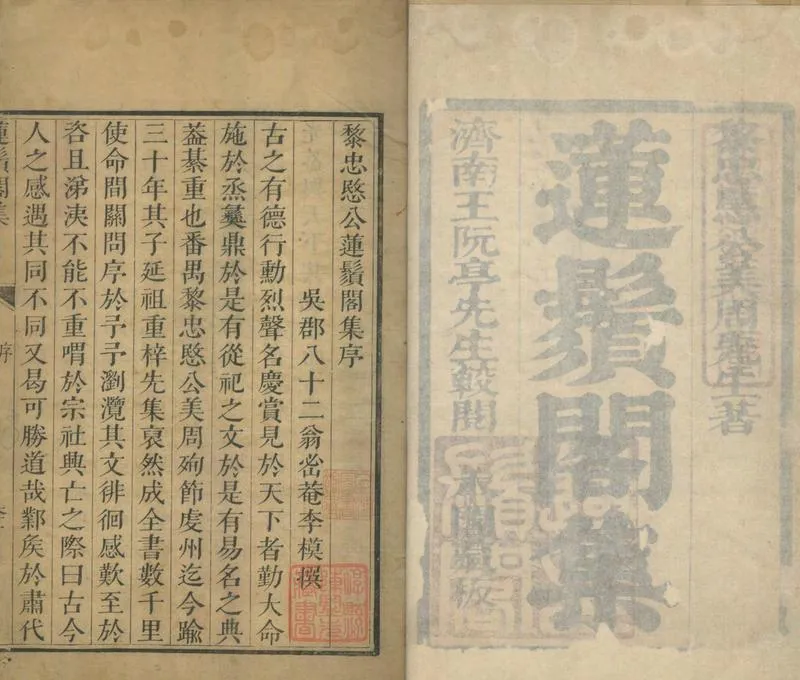 黎忠愍公美周先生著
蓮鬚閣集
濟南王阮亭先生較閱
藏板
黎忠愍公蓮鬚閣集序
吳郡八十二翁峃菴李模撰
古之有德行勳烈聲名慶賞見於天下者勤大命
施於烝彝鼎於是有從祀之文於是有易名之典
葢綦重也番禺黎忠愍公美周殉節虔州迄今踰
三十年其子延祖重梓先集裒然成全書數千里
使命間關問序於予予瀏灠其文徘徊感歎至於
咨且涕洟不能不重喟於宗社興亡之際曰古今
人之感遇其同不同又曷可勝道哉鄴矦於肅代
蓮鬚閣集
序